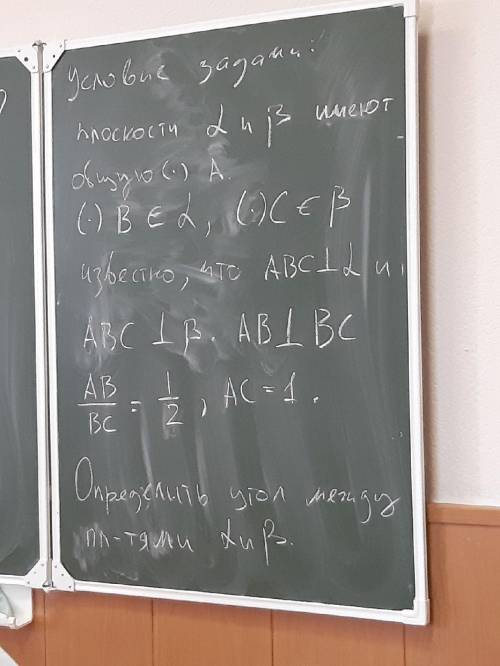 Условие задачи:
плоскости α и β имеют
общую (·) A.
(·) B ∈ α, (·) C ∈ β
известно, что ABC ⊥ α и
ABC ⊥ β. AB ⊥ BC
AB/BC = 1/2, AC = 1.
Определить угол между
пл-тями α и β.